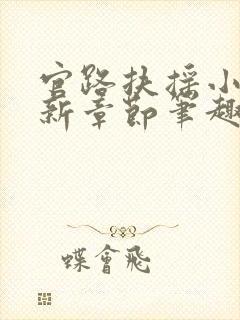 官路扶摇小
新章节笔趣
蝶會飛